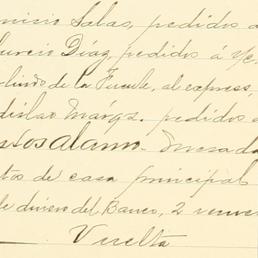 nisio Salas, pedidos á
burcio Díaz, pedidos á
lindo de la Fuente, al express,
dislao Márqz. pedidos
stos alamo.
tos de casa principal
de divisro del Banco, 2
Vuelta